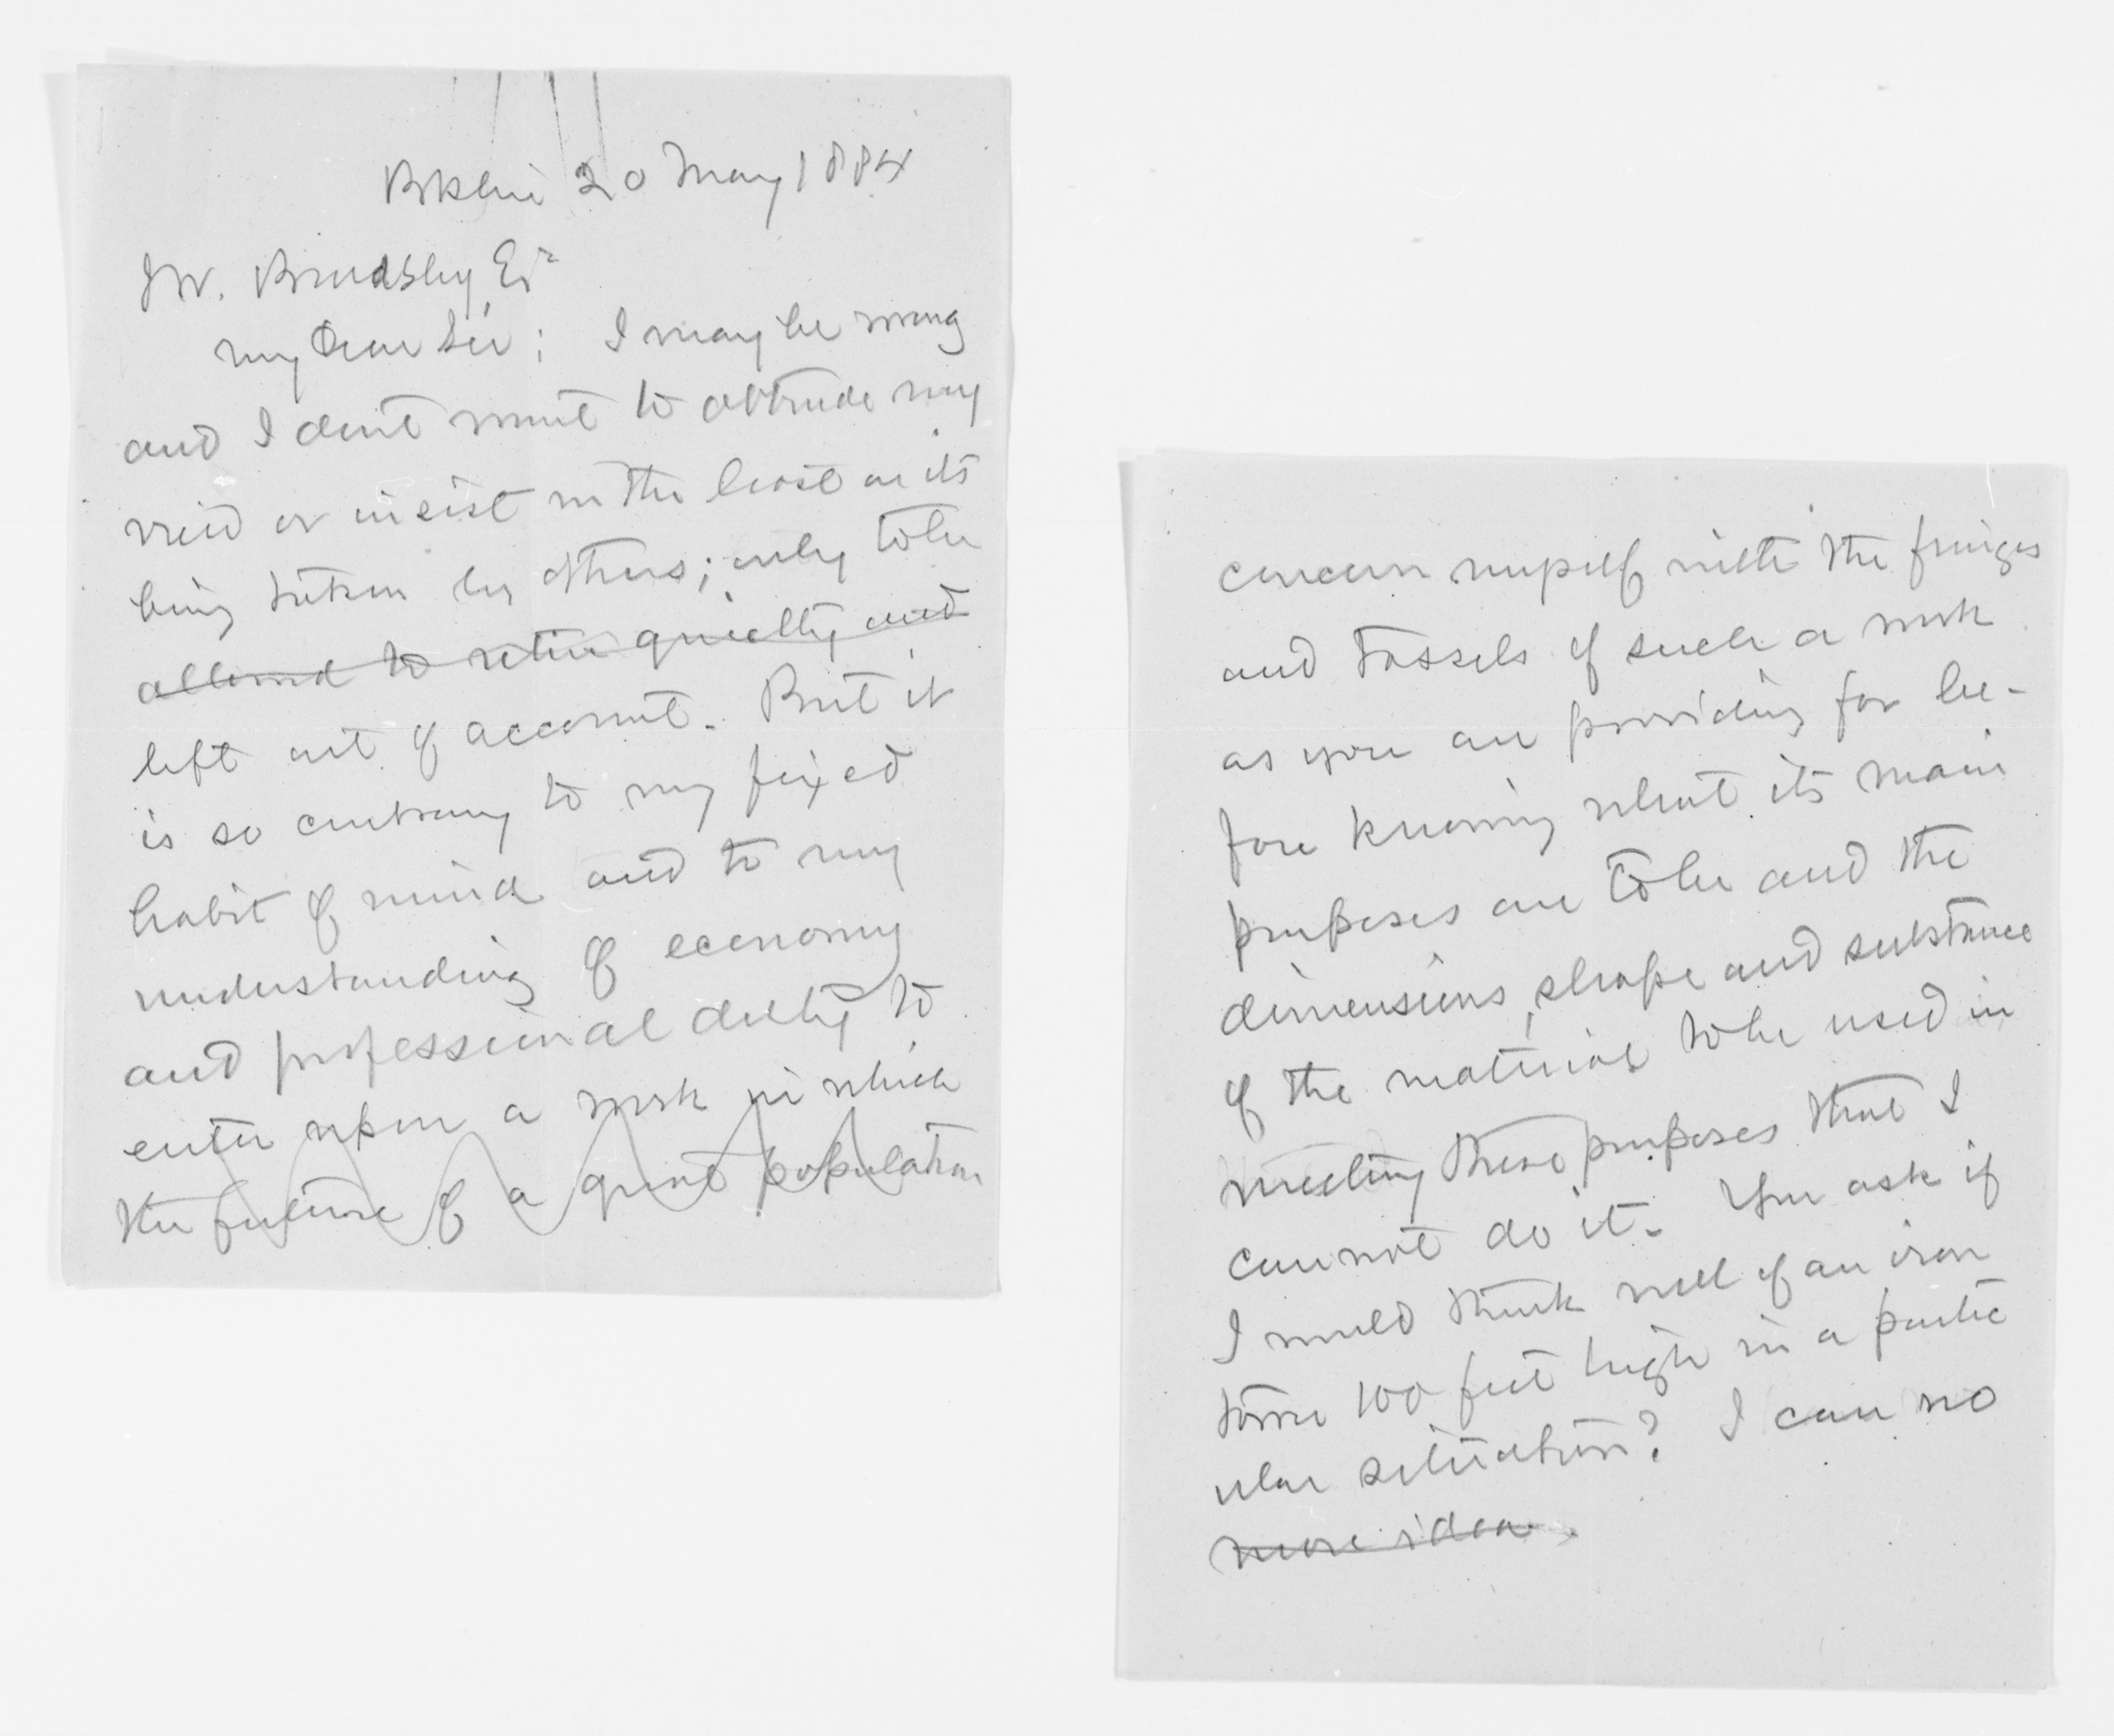 Bkline 20 May 1884
J W. Beardsley Esqr
My Dear Sir; I may be wrong
and I don't want to obtrude my
view or insist in the least on its
being taken by others; only to be
allowed to retire quietly and
left out of account. But it
is so contrary to my fixed
habit of mind and to my
understanding of economy
and professional duty to
enter upon a work in which
the future of a great population
concern myself with the fringes
and tassels of such a work
as you are providing for be-
fore knowing what its main
purposes are to be and the
dimensions, shape and substance
of the material to be used in
meeting these purposes that I
can not do it. You ask if
I would think well of an iron
tower 100 feet high in a partic
ular situation? I can no
more idea.